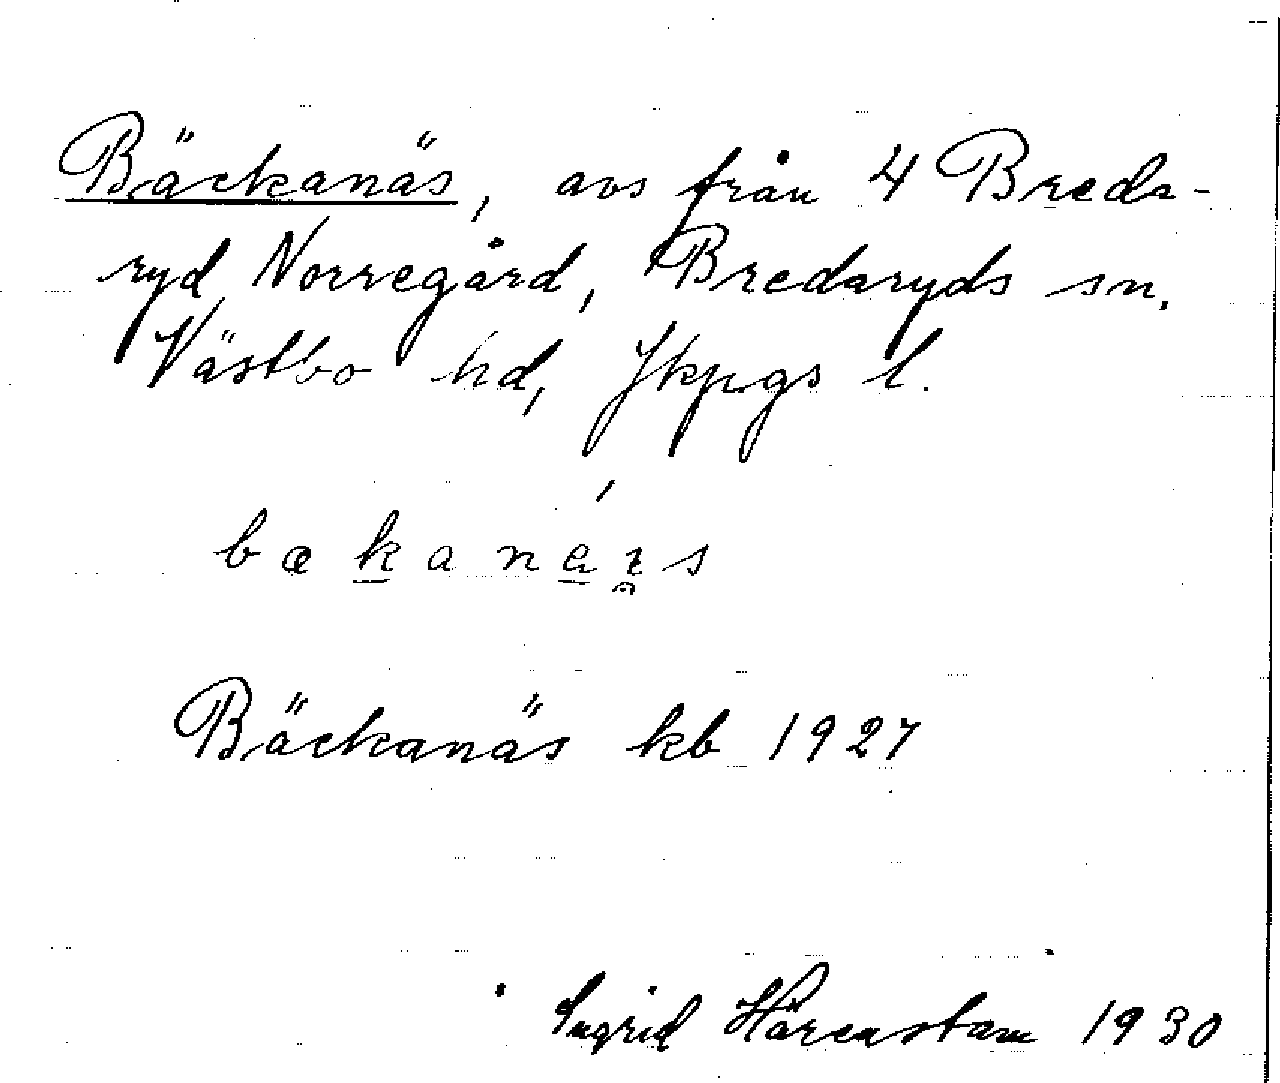 Bäckanäs, avs från 4 Breda-
ryd Norregård, Bredaryds sn,
Västbo hd, Jkpgs l.
Bäckanäs kb 1927
Ingrid Hårenstam 1930